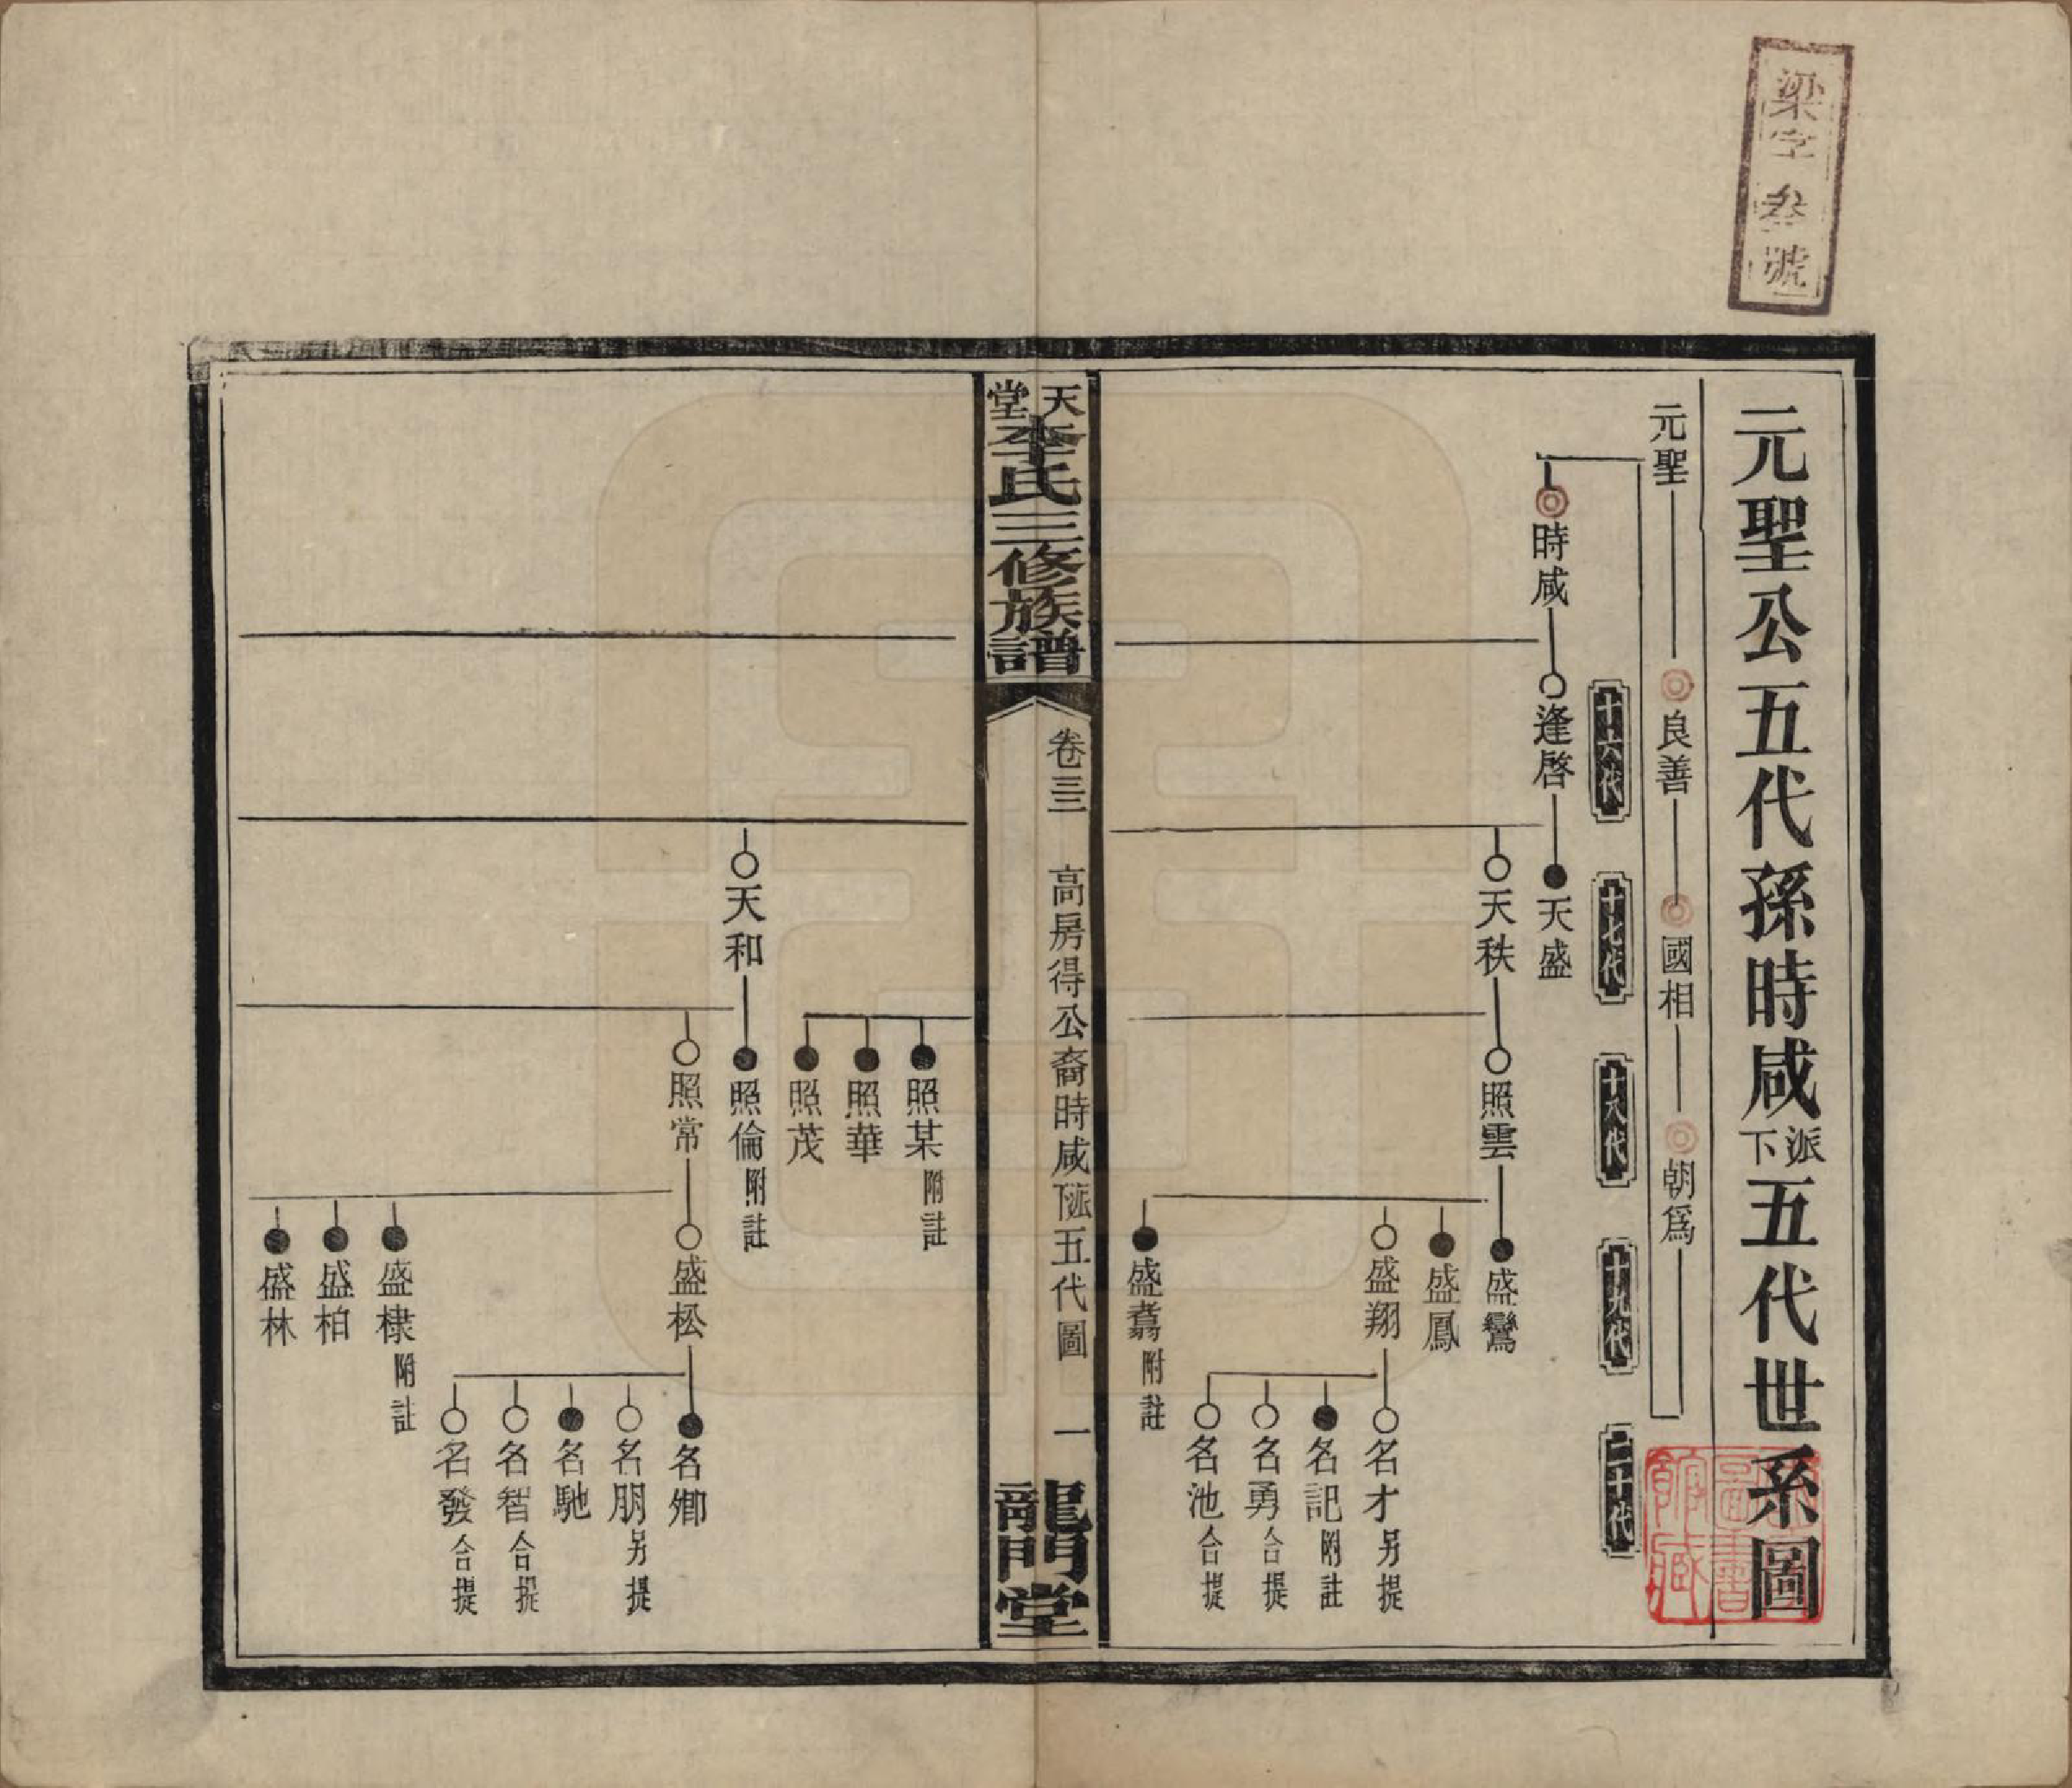 梁字叁號
元聖公五代孫時咸派下五代世系圖
元聖 良善 國相 朝爲
十六代 十七代 十八代 十九代 二十代
時咸 逢啓 天盛
天秩 照雲 盛鸞
盛鳳
盛翔 名才 另提
名記 附註
名勇 合提
名池 合提
盛翥 附註
天堂李氏三修族譜 卷三三 高房得公裔時咸派下五代圖 一 龍門堂
照某 附註
照華
照茂
天和 照倫 附註
照常 盛松 名鄉
名朋 另提
名馳
名智 合提
名發 合提
盛棣 附註
盛柏
盛林